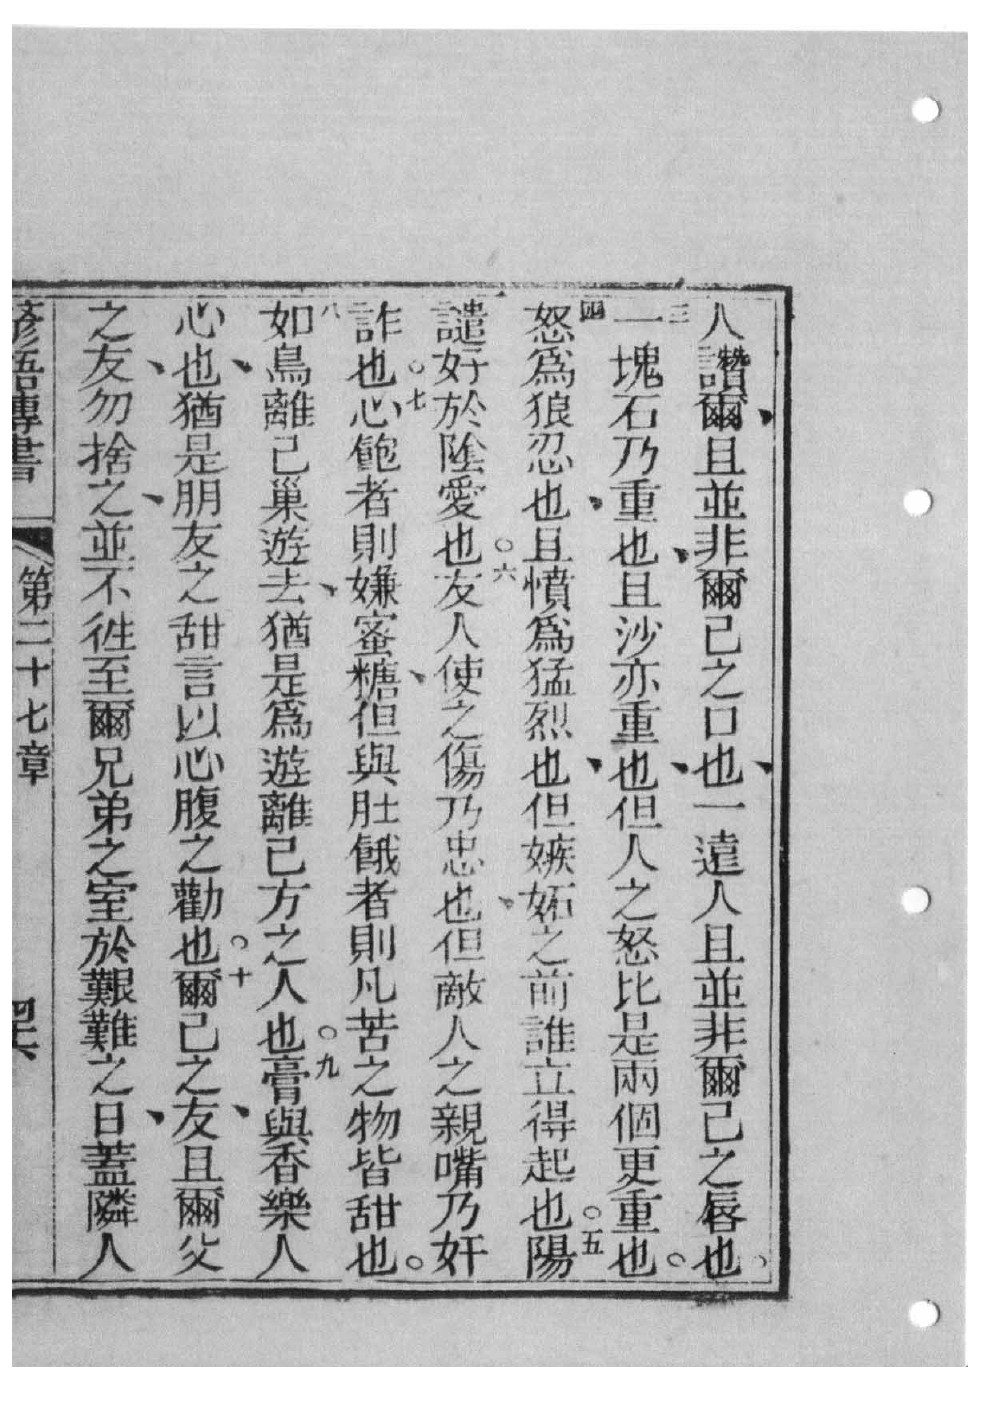 人讚爾且並非爾己之口也一遠人且並非爾己之唇也。
三一塊石乃重也且沙亦重也但人之怒比是兩個更重也。
四怒爲狼忍也且憤爲猛烈也但嫉妬之前誰立得起也。五陽
譴好於陰愛也。六友人使之傷乃忠也但敵人之親嘴乃奸
詐也。七心飽者則嫌蜜糖但與肚餓者則凡苦之物皆甜也。
八如鳥離己巢遊去猶是爲遊離己方之人也。九膏與香樂人
心也猶是朋友之甜言以心腹之勸也。十爾己之友且爾父
之友勿捨之並不徃至爾兄弟之室於艱難之日蓋隣人
諺語傳書 第二十七章 四六